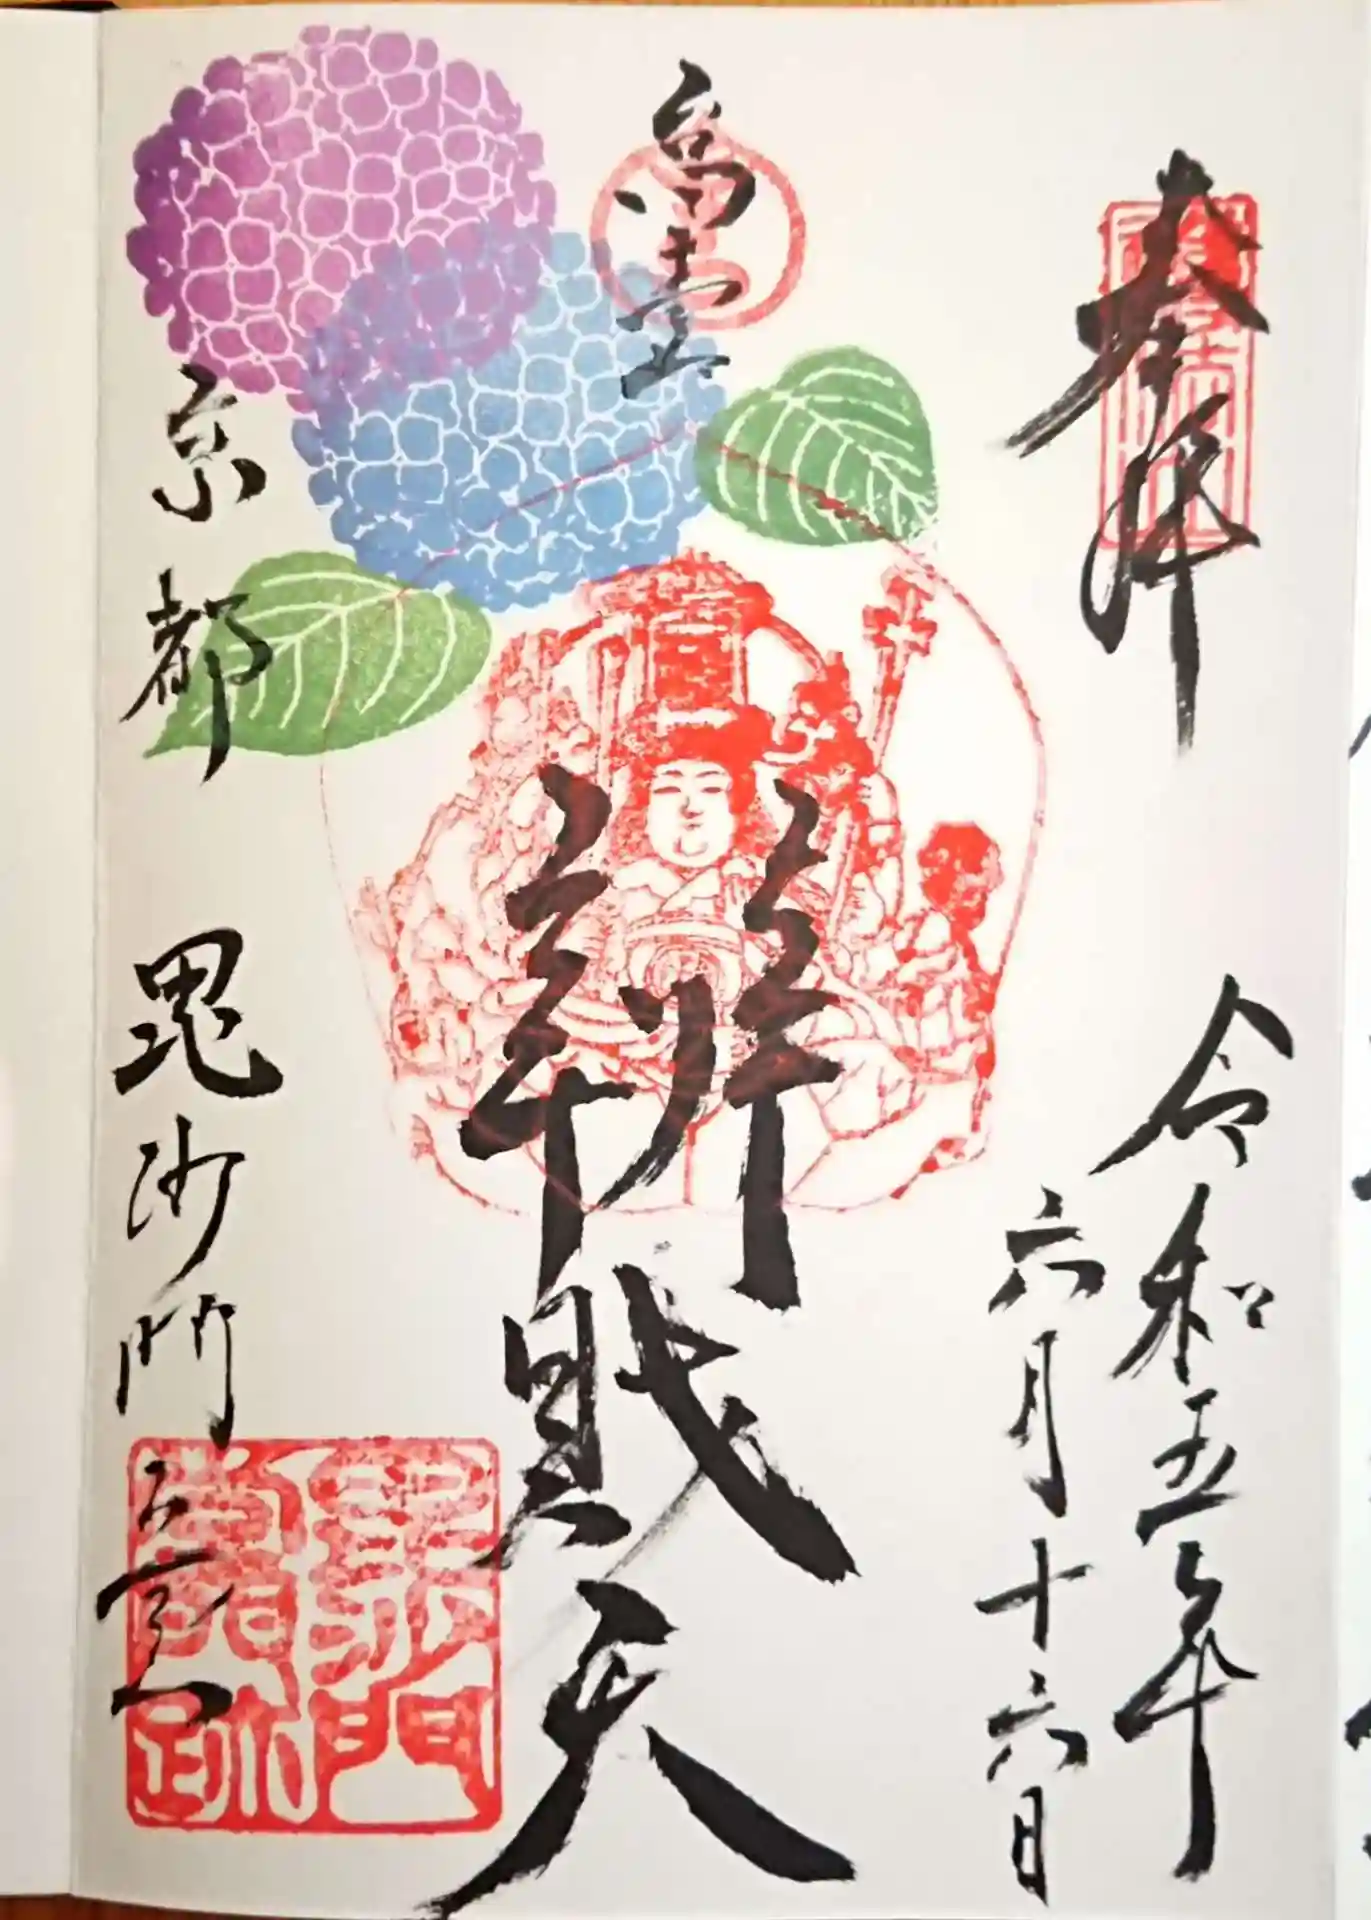 奉拝
令和五年
六月十六日
高台
辨財天
京都 毘沙門堂